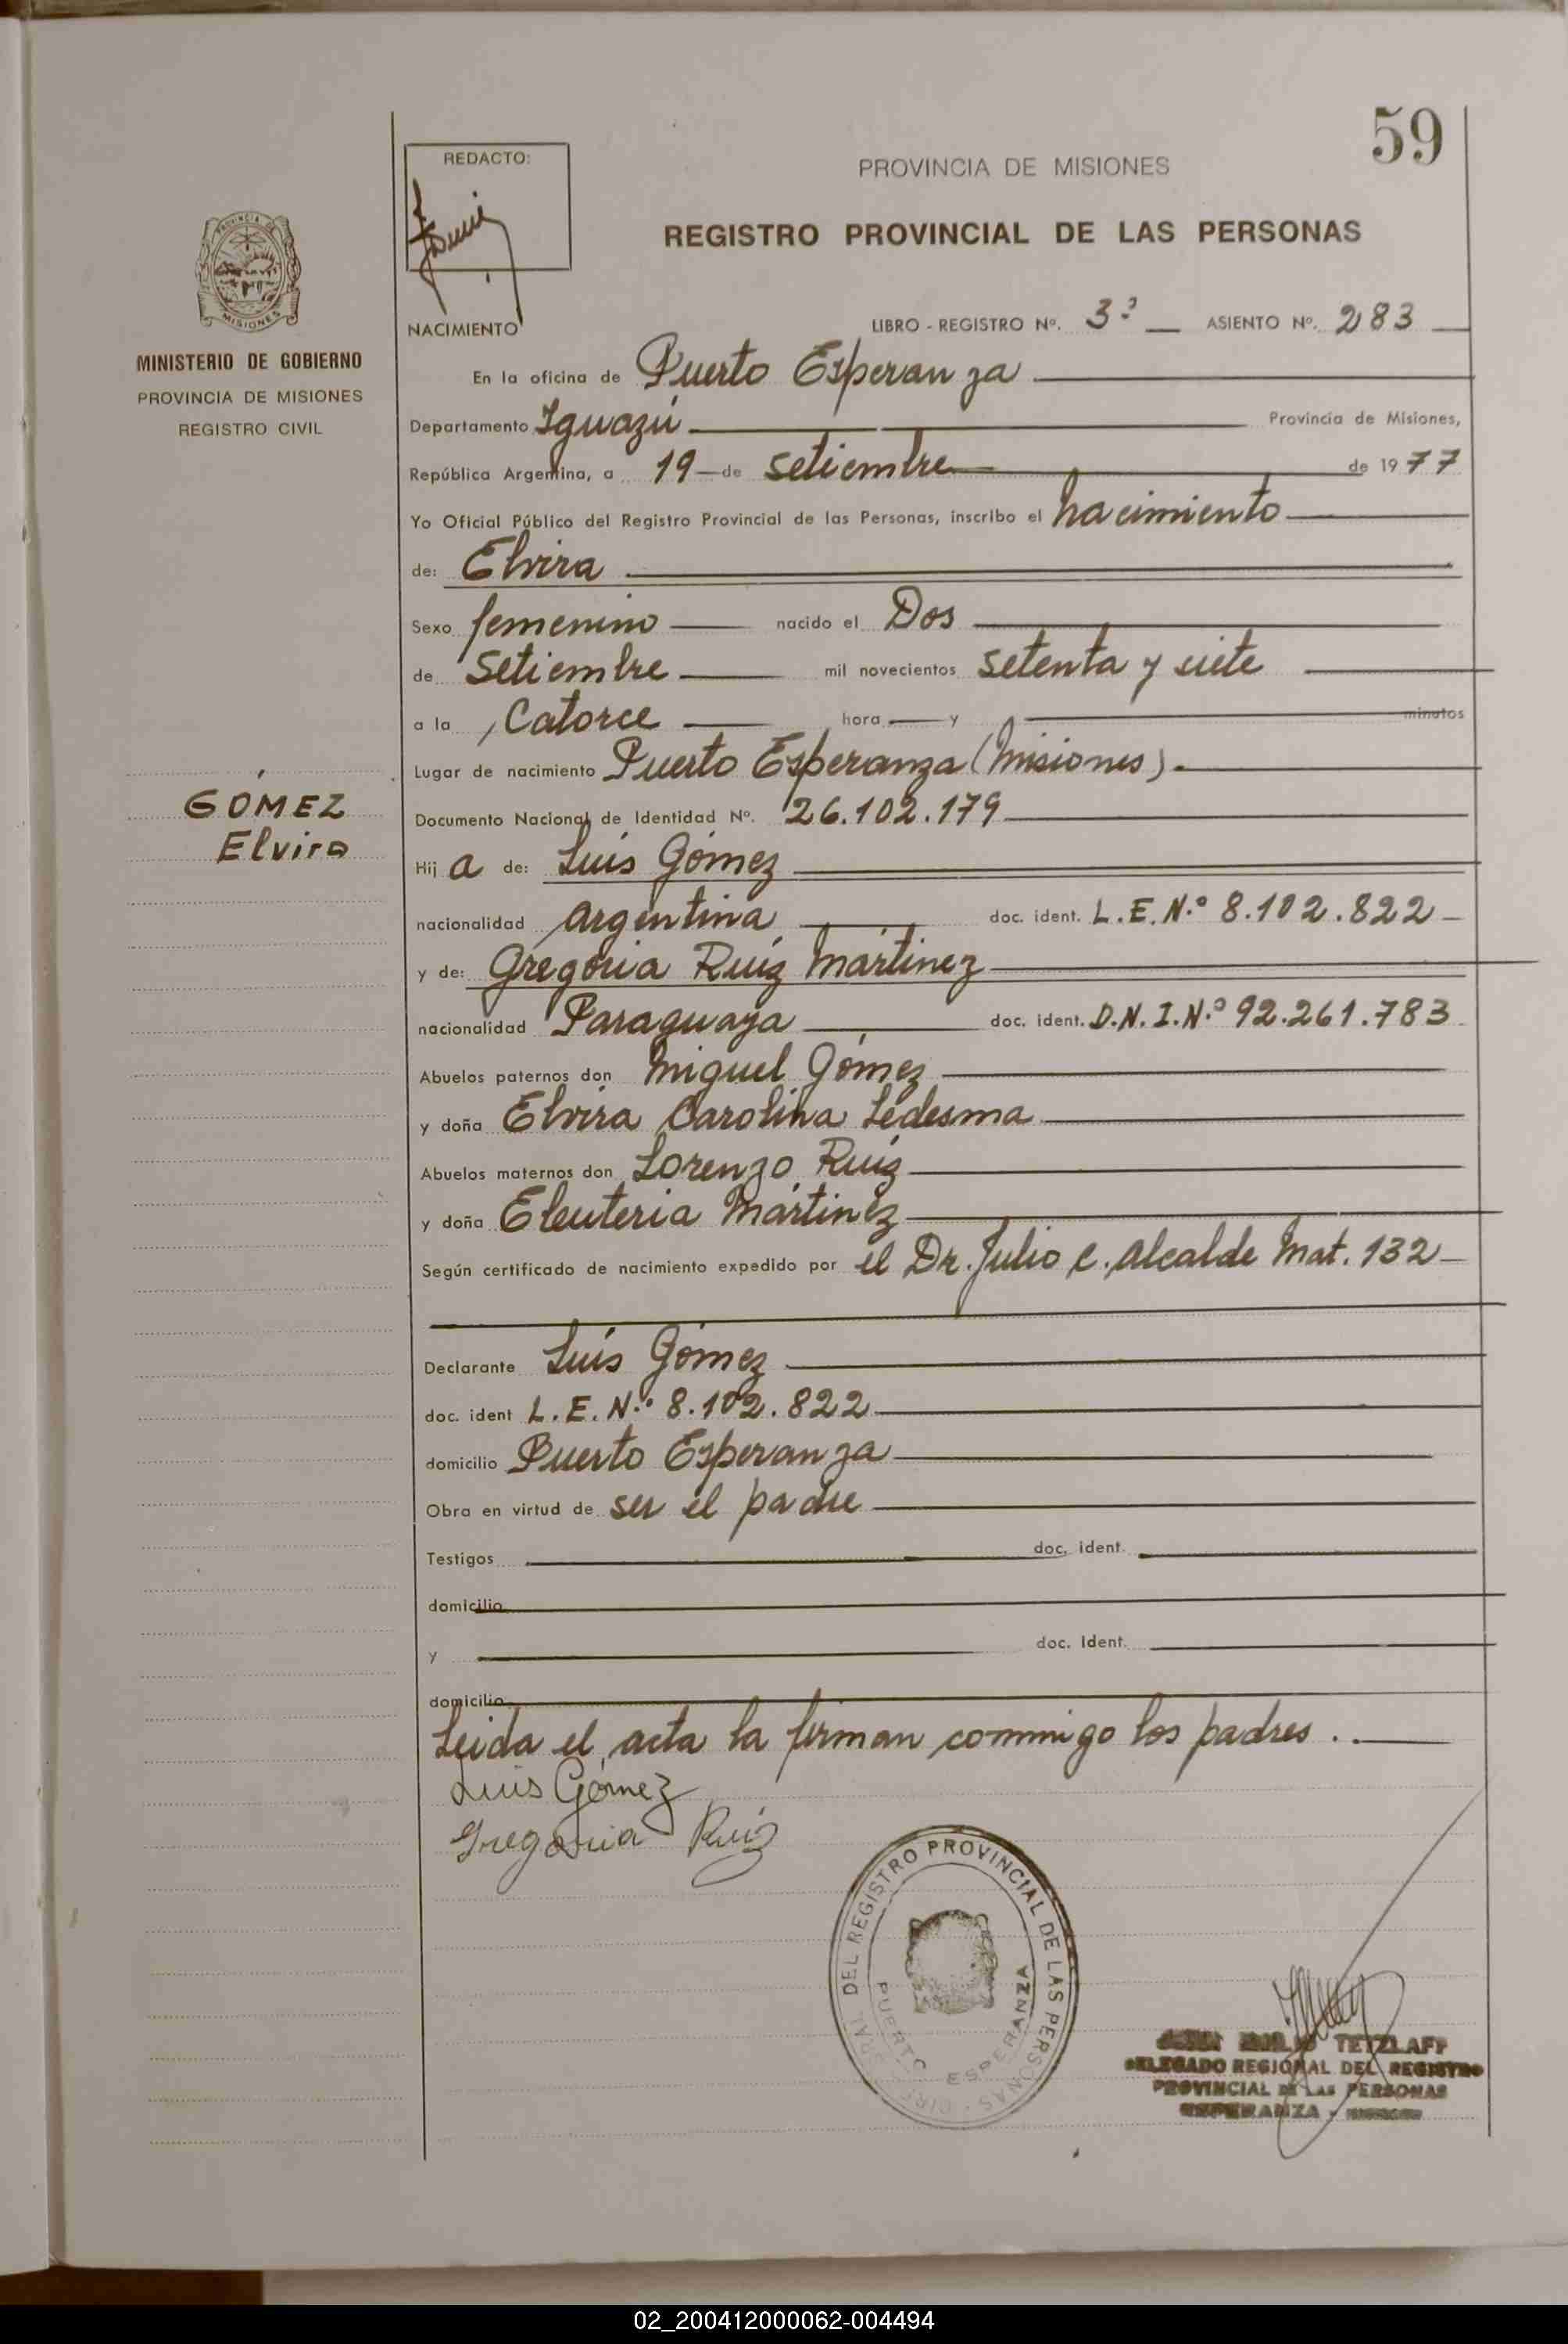 59
REDACTO:
PROVINCIA DE MISIONES
REGISTRO PROVINCIAL DE LAS PERSONAS
PROVINCIA DE
MISIONES
MINISTERIO DE GOBIERNO
PROVINCIA DE MISIONES
REGISTRO CIVIL
NACIMIENTO
LIBRO - REGISTRO Nº. 3º ASIENTO Nº. 283
En la oficina de Puerto Esperanza
Departamento Iguazú Provincia de Misiones,
República Argentina, a 19 de setiembre de 1977
Yo Oficial Público del Registro Provincial de las Personas, inscribo el nacimiento
de: Elvira
Sexo femenino nacido el Dos
de Setiembre mil novecientos setenta y siete
a la Catorce hora y minutos
Lugar de nacimiento Puerto Esperanza (Misiones).
GÓMEZ
Elvira
Documento Nacional de Identidad Nº. 26.102.179
Hij a de: Luís Gómez
nacionalidad argentina doc. ident. L.E.N.º 8.102.822
y de: Gregoria Ruíz Mártinez
nacionalidad Paraguaya doc. ident. D.N.I.N.º 92.261.783
Abuelos paternos don Miguel Gómez
y doña Elvira Carolina Ledesma
Abuelos maternos don Lorenzo Ruíz
y doña Eleuteria Mártinez
Según certificado de nacimiento expedido por el Dr. Julio C. Alcalde Mat. 132
Declarante Luís Gómez
doc. ident L.E.N.º 8.102.822
domicilio Puerto Esperanza
Obra en virtud de ser el padre
Testigos doc. ident.
domicilio
y doc. Ident.
domicilio
Leida el acta la firman commigo los padres..
Luis Gómez
Gregoria Ruiz
DEL REGISTRO PROVINCIAL DE LAS PERSONAS
PUERTO ESPERANZA
TETZLAFF
DELEGADO REGIONAL DEL REGISTRO
PROVINCIAL DE LAS PERSONAS
ESPERANZA
02_200412000062-004494